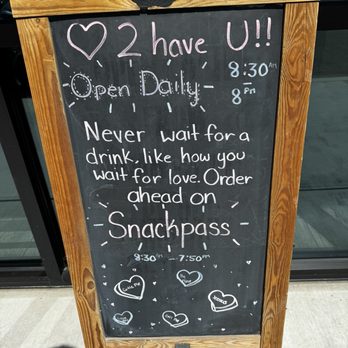 ♡ 2 have U!!
Open Daily 8:30 AM
- 8 PM
Never wait for a
drink, like how you
wait for love. Order
ahead on
Snackpass
8:30 - 7:50